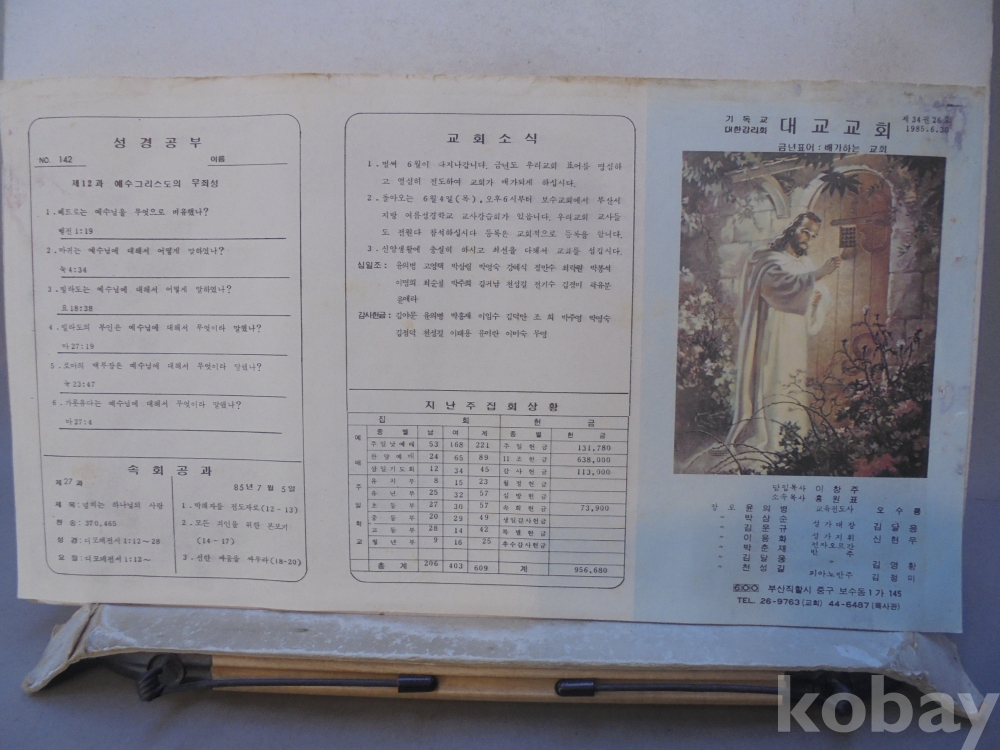 성경공부
NO. 142 이름
제12과 예수그리스도의 무죄성
1. 베드로는 예수님을 무엇으로 비유했나?
벧전 1:19
2. 마귀는 예수님에 대해서 어떻게 말하였나?
눅 4:34
3. 빌라도는 예수님에 대해서 어떻게 말하였나?
요 18:38
4. 빌라도의 부인은 예수님에 대해서 무엇이라 말했나?
마 27:19
5. 로마의 백부장은 예수님에 대해서 무엇이라 말했나?
눅 23:47
6. 가롯유다는 예수님에 대해서 무엇이라 말했나?
마 27:4
속회공과
제27과 85년 7월 5일
제목: 넘치는 하나님의 사랑
찬송: 370, 465
성경: 디모데전서 1:12~28
요절: 디모데전서 1:12~
1. 박해자를 전도자로(12-13)
2. 모든 죄인을 위한 본보기
(14-17)
3. 선한 싸움을 싸우라(18-20)
교회소식
1. 벌써 6월이 다 지나갑니다. 금년도 우리교회 표어를 명심하
고 열심히 전도하여 교회가 배가되게 하십시다.
2. 돌아오는 6월 4일(목), 오후 6시부터 보수교회에서 부산시
지방 여름성경학교 교사강습회가 있읍니다. 우리교회 교사들
도 전원다 참석하십시다 등록은 교회적으로 등록을 합니다.
3. 신앙생활에 충실히 하시고 최선을 다해서 교회를 섬깁시다.
십일조: 윤의병 고영택 박상림 박영숙 강혜식 정인수 최락원 박봉석
이명희 최순실 박주희 김거남 천성길 전기수 김경미 곽유분
윤애라
감사헌금: 김아뭇 윤의병 박흥재 이입수 김덕만 조 희 박주영 박영숙
김정덕 천성길 이태웅 유미란 이미숙 무명
지난주집회상황
집 회 헌 금
종별 남 여 계 종별 헌금
예 배
주일낮예배 53 168 221 주일헌금 131,780
찬양예배 24 65 89 11조헌금 638,000
담임기도회 12 34 45 감사헌금 113,000
주 일 학 교
유치부 8 15 23 월정헌금
유년부 25 32 57 심방헌금
초등부 27 30 57 속회헌금 73,900
중등부 20 29 49 생일감사헌금
고등부 28 14 42 특별헌금
청년부 9 16 25 추수감사헌금
총계 206 403 609 계 956,680
기독교
대한감리회 대교교회
제34권 26호
1985.6.30
금년표어: 배가하는 교회
담임목사 이창주
소속목사 홍원표
장로 윤의병 교육전도사 오수룡
〃 박상순
〃 김문규 성가대장 김달웅
〃 이응화 성가지휘 신현우
〃 박춘재 전자오르간
반주
〃 김달웅 〃 김영환
〃 천성길 피아노반주 김정미
600 부산직할시 중구 보수동1가 145
TEL. 26-9763(교회) 44-6487(목사관)
kobay